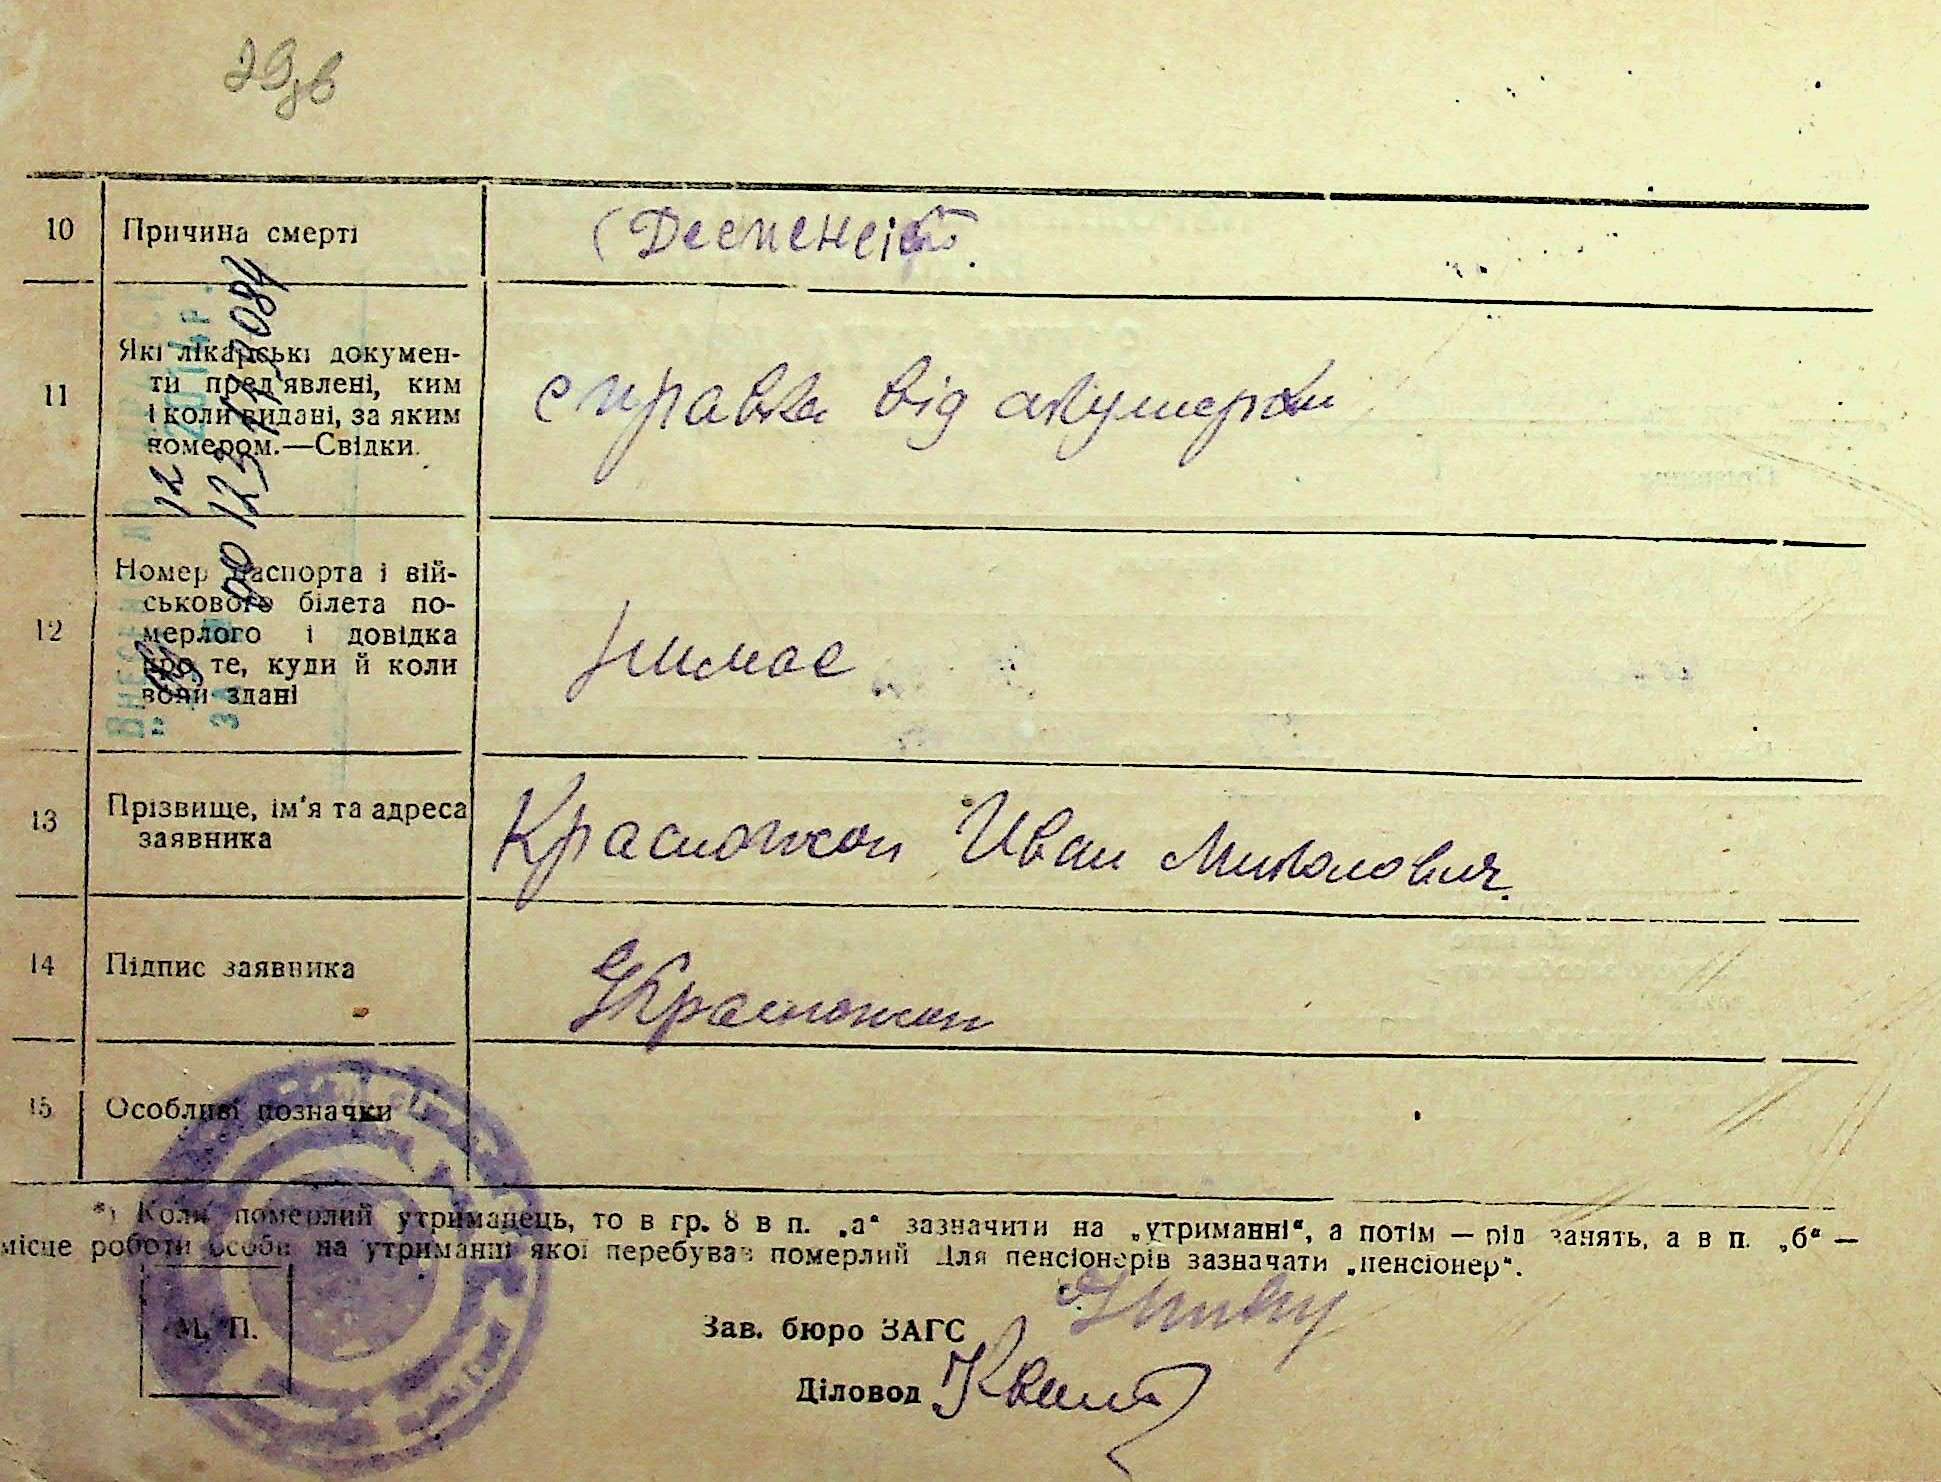 10 Причина смерті
11 Які лікарські докумен-
ти пред'явлені, ким
і коли видані, за яким
номером.—Свідки.
справка від акушерки
12 Номер паспорта і вій-
ськового білета по-
мерлого і довідка
про те, куди й коли
вони здані
нимає
13 Прізвище, ім'я та адреса
заявника
Красножон Иван Миколович.
14 Підпис заявника
Красножон
15 Особливі позначки
*) Коли померлий утриманець, то в гр. 8 в п. „а“ зазначити на „утриманні“, а потім — рід занять, а в п. „б“ —
місце роботи особи на утриманні якої перебував померлий Для пенсіонерів зазначати „пенсіонер“.
М. П.
Зав. бюро ЗАГС
Діловод